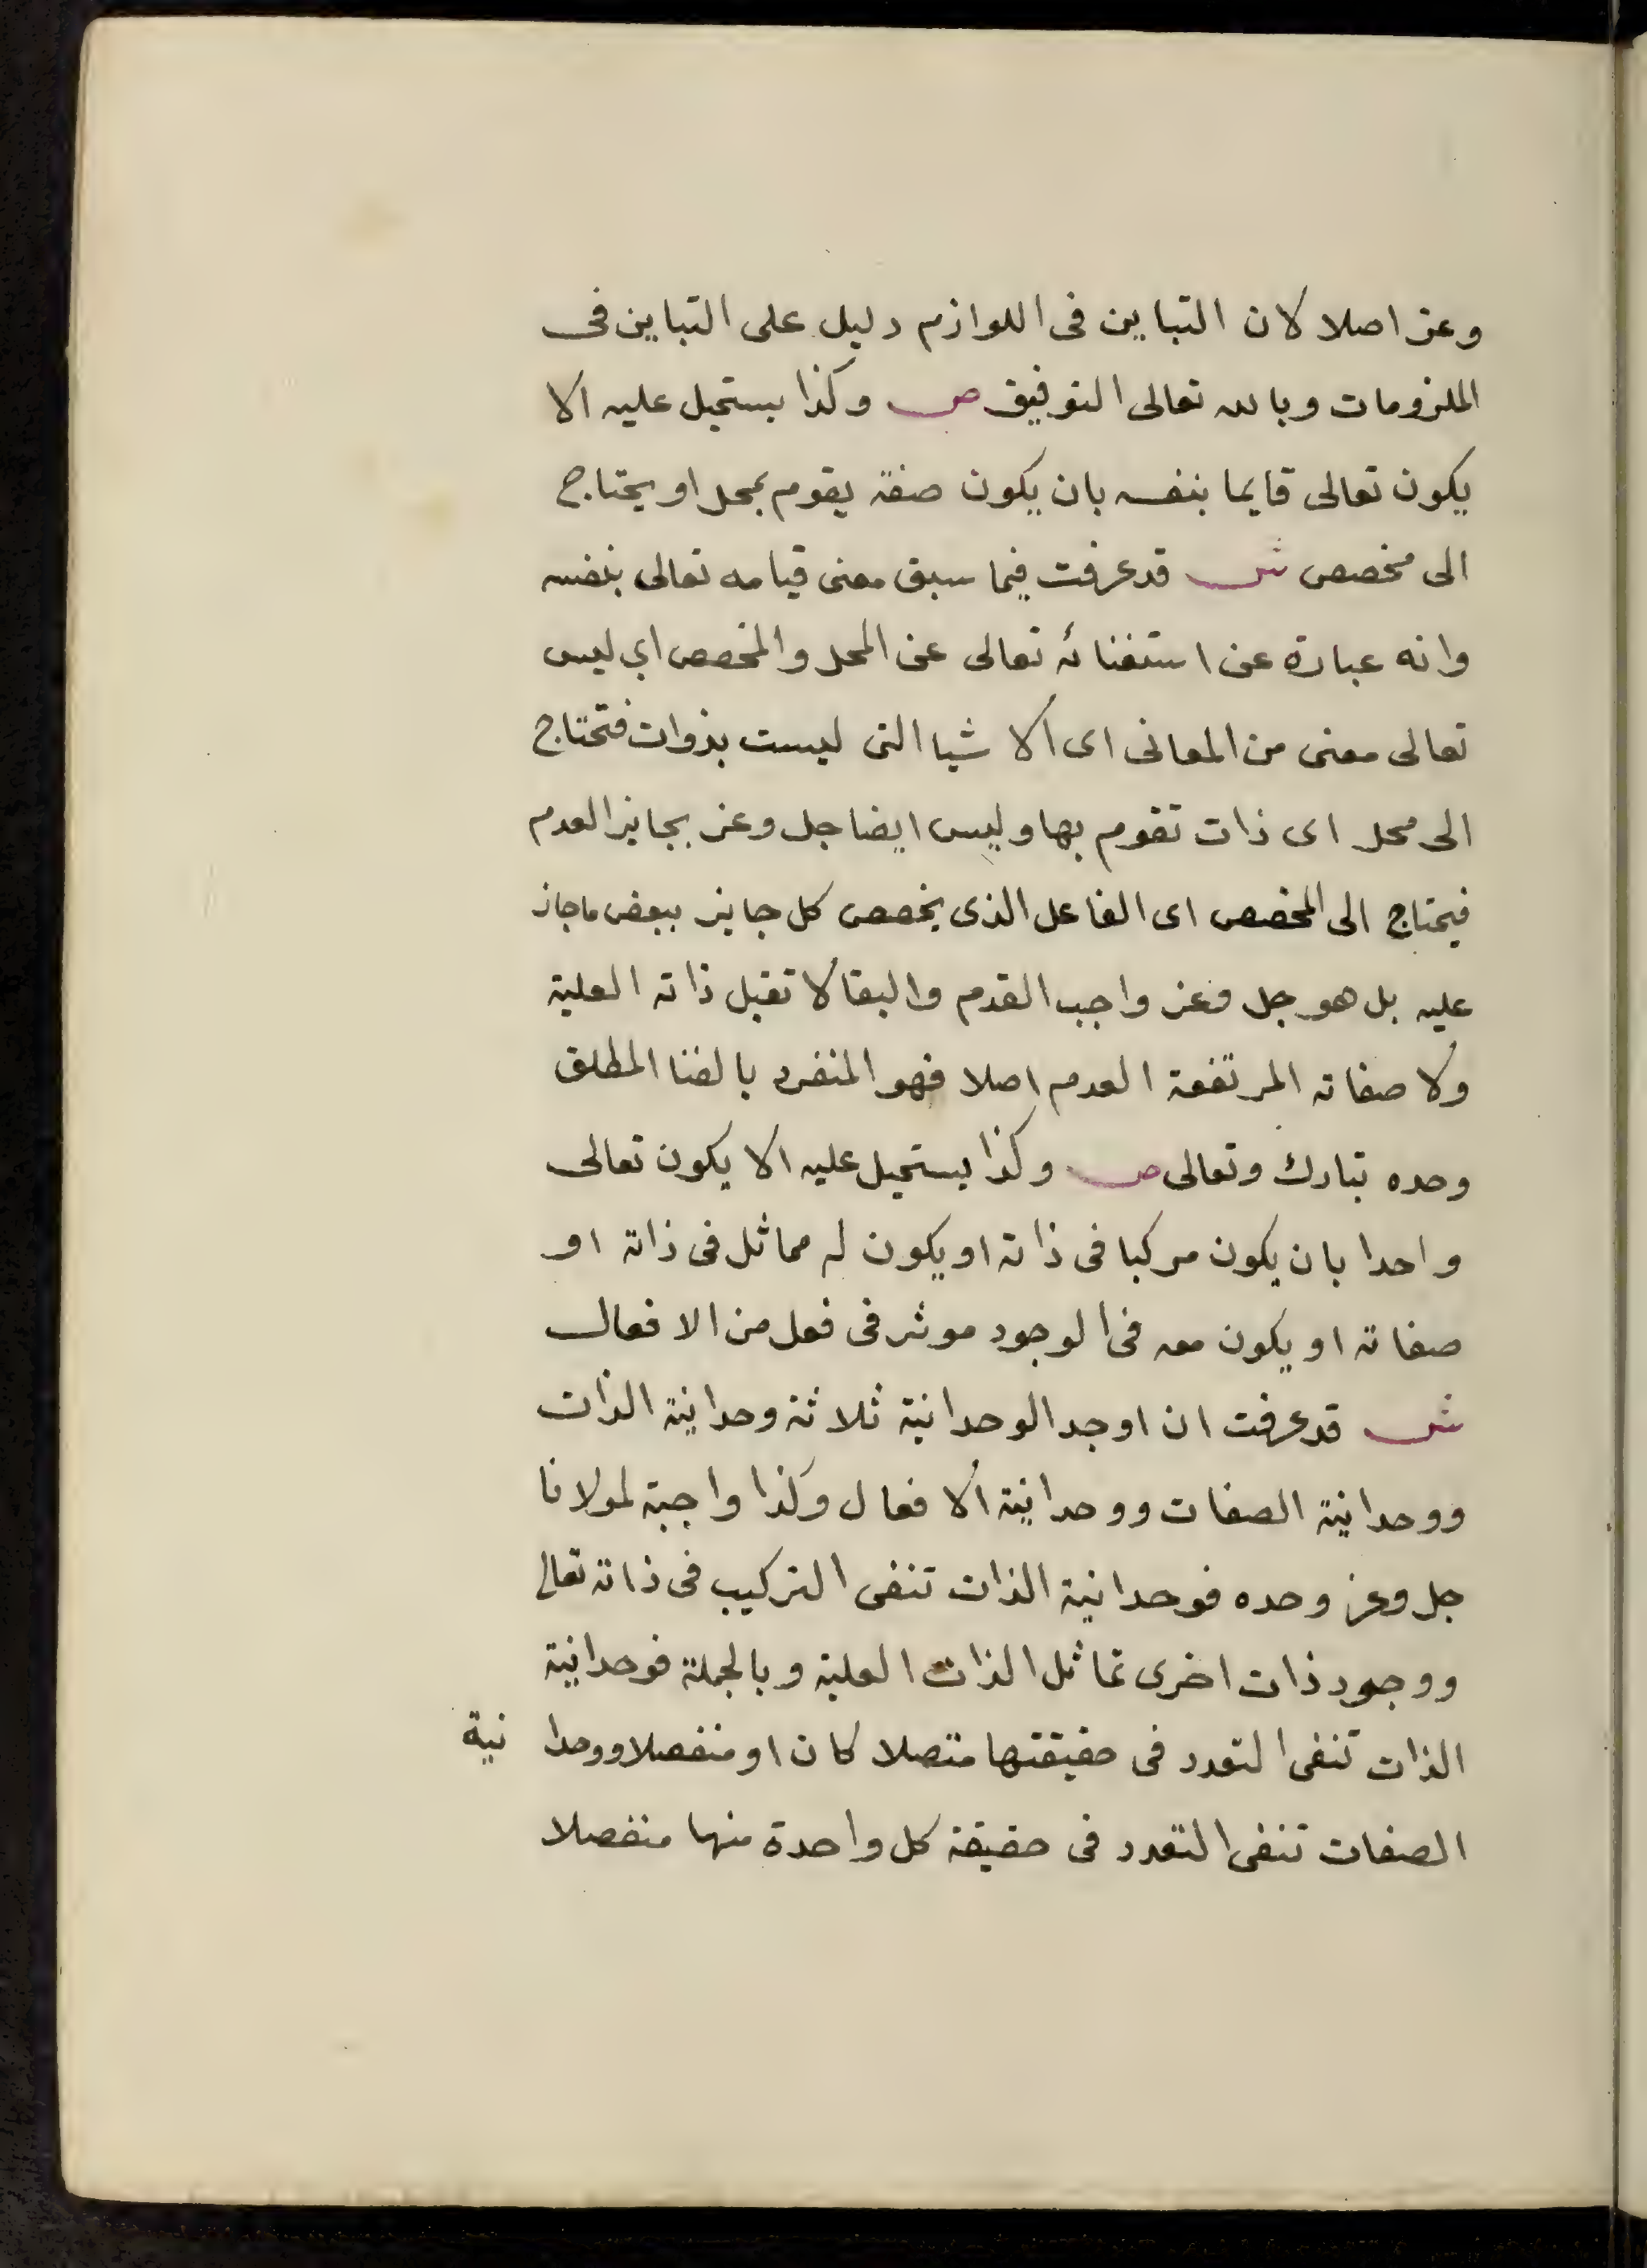 وعز اصلا لان التباين فى اللوازم دليل على التباين فى
الملزومات وبالله تعالى التوفيق ص وكذا يستحيل عليه الا
يكون تعالى قايما بنفسه بان يكون صفة يقوم بمحل او يحتاج
الى مخصص ش قد عرفت فيما سبق معنى قيامه تعالى بنفسه
وانه عبارة عن استغنائه تعالى عن المحل والمخصص اي ليس
تعالى معنى من المعانى اى الاشيا التى ليست بذوات فتحتاج
الى محل اى ذات تقوم بها وليس ايضا جل وعز بجايز العدم
فيحتاج الى المخصص اى الفاعل الذى يخصص كل جايز ببعض ماجاز
عليه بل هو جل وعز واجب القدم والبقا لا تقبل ذاته العلية
ولا صفاته المرتفعة العدم اصلا فهو المنفرد بالغنا المطلق
وحده تبارك وتعالى ص وكذا يستحيل عليه الا يكون تعالى
واحدا بان يكون مركبا فى ذاته او يكون له مماثل فى ذاته او
صفاته او يكون معه فى الوجود موثر فى فعل من الافعال
ش قد عرفت ان اوجد الوحدانية ثلاثة وحدانية الذات
ووحدانية الصفات ووحدانية الافعال وكذا واجبة لمولانا
جل وعز وحده فوحدانية الذات تنفى التركيب فى ذاته تعالى
ووجود ذات اخرى تماثل الذات العلية وبالجملة فوحدانية
الذات تنفى التعدد فى حقيقتها متصلا كان او منفصلا ووحدا نية
الصفات تنفى التعدد فى حقيقة كل واحدة منها منفصلا